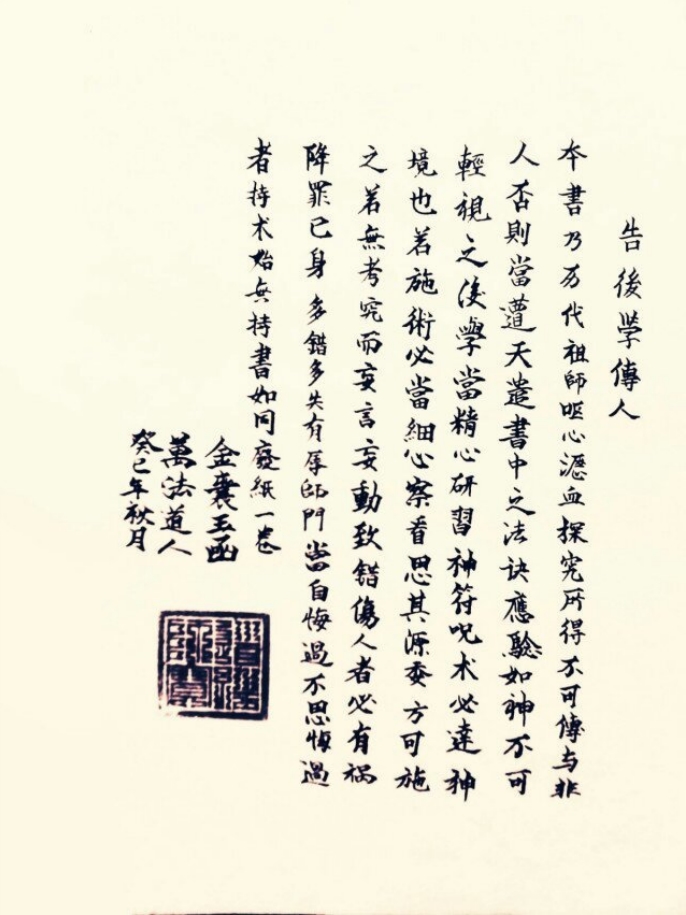 告後学傳人
本書乃历代祖師呕心瀝血探究所得不可傳与非
人否則當遭天譴書中之法诀應驗如神不可
輕視之後學當精心研習神符呪术必達神
境也若施術必當細心察看思其源委方可施
之若無考究而妄言妄動致錯傷人者必有祸
降罪已身多錯多失有辱師門當自悔過不思悔過
者持术始無持書如同廢紙一卷
金囊玉函
萬法道人
癸巳年秋月